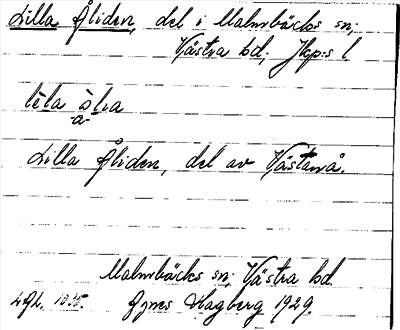 Lilla Åliden, del i Malmbäcks sn;
Västra hd; Jkp:s l.
Lilla Åliden, del av Västanå.
Malmbäcks sn; Västra hd.
Agnes Hagberg 1929.